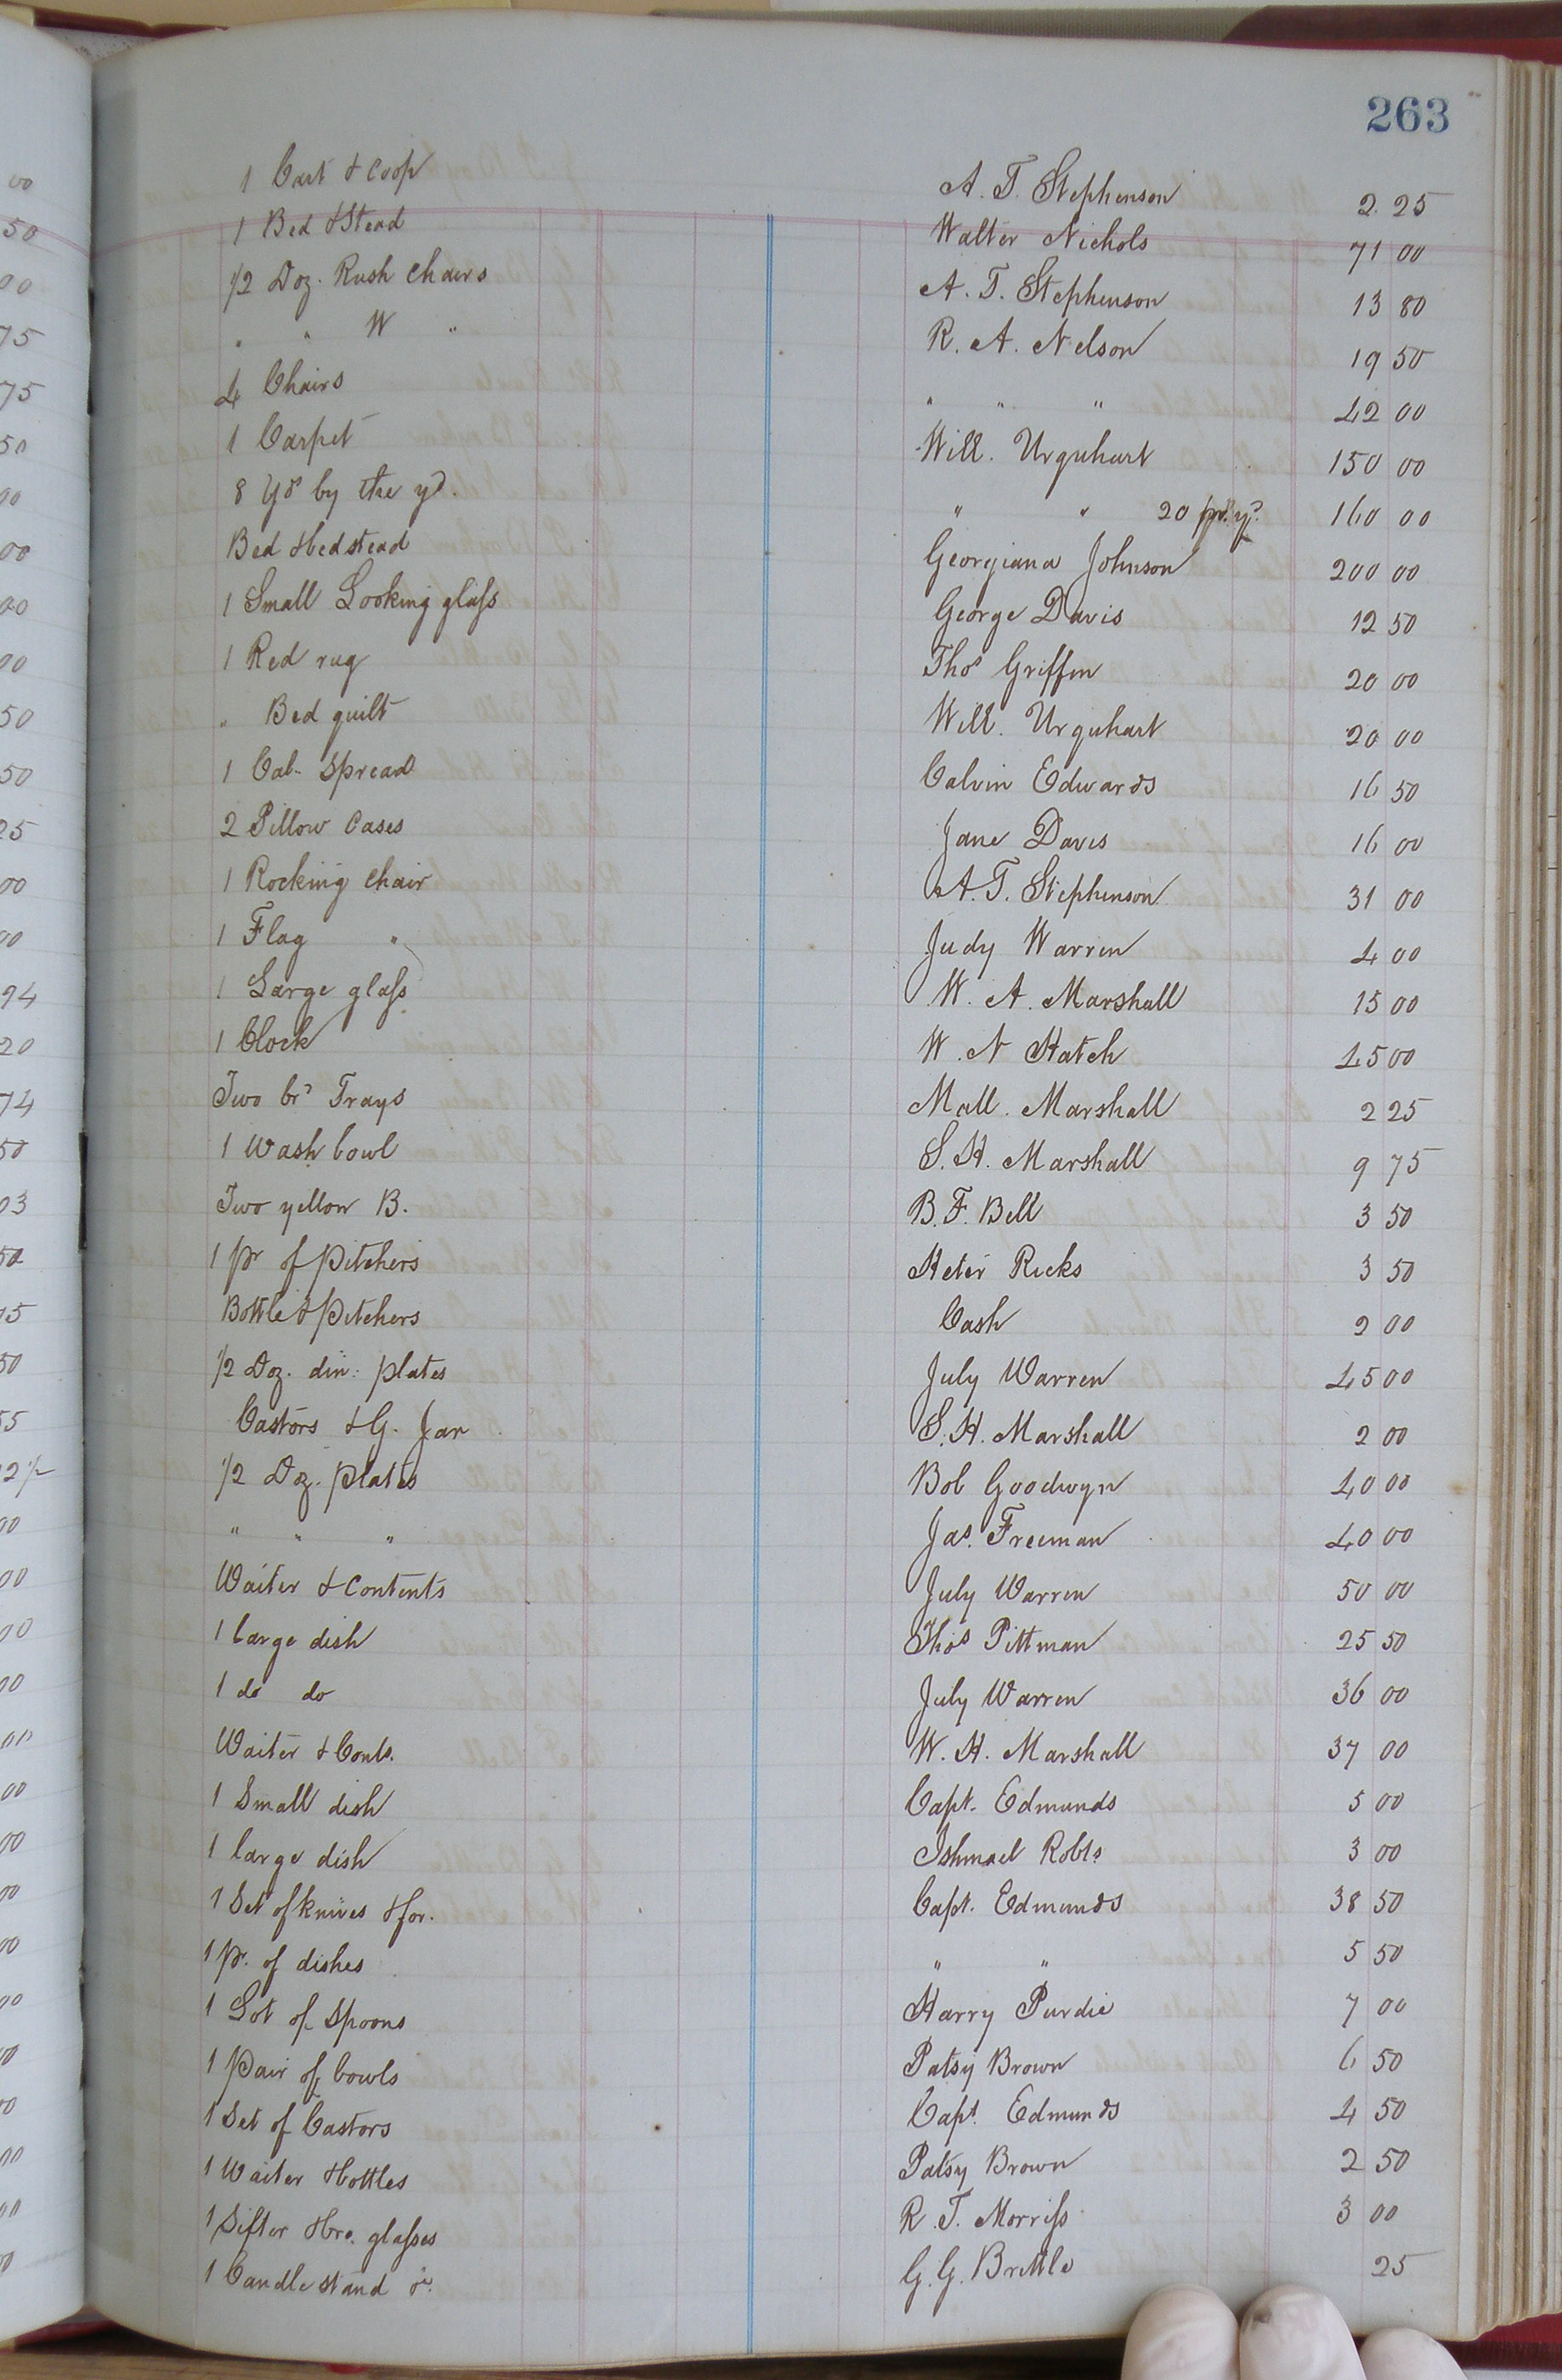 263
1 Cart & Coop A. T. Stephenson 2 25
1 Bed & Stead Walter Nichols 71 00
1/2 Doz. Rush Chairs A. T. Stephenson 13 80
" " W " R. A. Nelson 19 50
4 Chairs " " " 42 00
1 Carpet Will. Urquhart 150 00
8 Yds by the yd. " " 20 pr. yd. 160 00
Bed & bedstead Georgiana Johnson 200 00
1 Small Looking glass George Davis 12 50
1 Red rug Thos Griffin 20 00
" Bed quilt Will. Urquhart 20 00
1 Cal. Spread Calvin Edwards 16 50
2 Pillow Cases Jane Davis 16 00
1 Rocking Chair A. T. Stephenson 31 00
1 Flag " Judy Warren 4 00
1 Large glass W. A. Marshall 15 00
1 Clock W. N Hatch 45 00
Two br? Trays Mall. Marshall 2 25
1 Wash bowl S. H. Marshall 9 75
Two yellow B. B. F. Bell 3 50
1 pr of Pitchers Heter Ricks 3 50
Bottle & Pitchers Cash 2 00
1/2 Doz. din: plates July Warren 45 00
Castors & G. Jar S. H. Marshall 2 00
1/2 Doz. plates Bob Goodwyn 40 00
" " " Jas. Freeman 40 00
Waiter & Contents July Warren 50 00
1 large dish Thos Pittman 25 50
1 do do July Warren 36 00
Waiter & Conts. W. H. Marshall 37 00
1 Small dish Capt. Edmunds 5 00
1 large dish Ishmael Robts 3 00
1 Set of knives & for. Capt. Edmunds 38 50
1 pr. of dishes " " 5 50
1 Lot of Spoons Harry Purdie 7 00
1 Pair of bowls Patsy Brown 6 50
1 Set of Castors Capt. Edmunds 4 50
1 Waiter & bottles Patsy Brown 2 50
1 Sifter & bro. glasses R. T. Morriss 3 00
1 Candle stand &c. G. G. Brittle 25